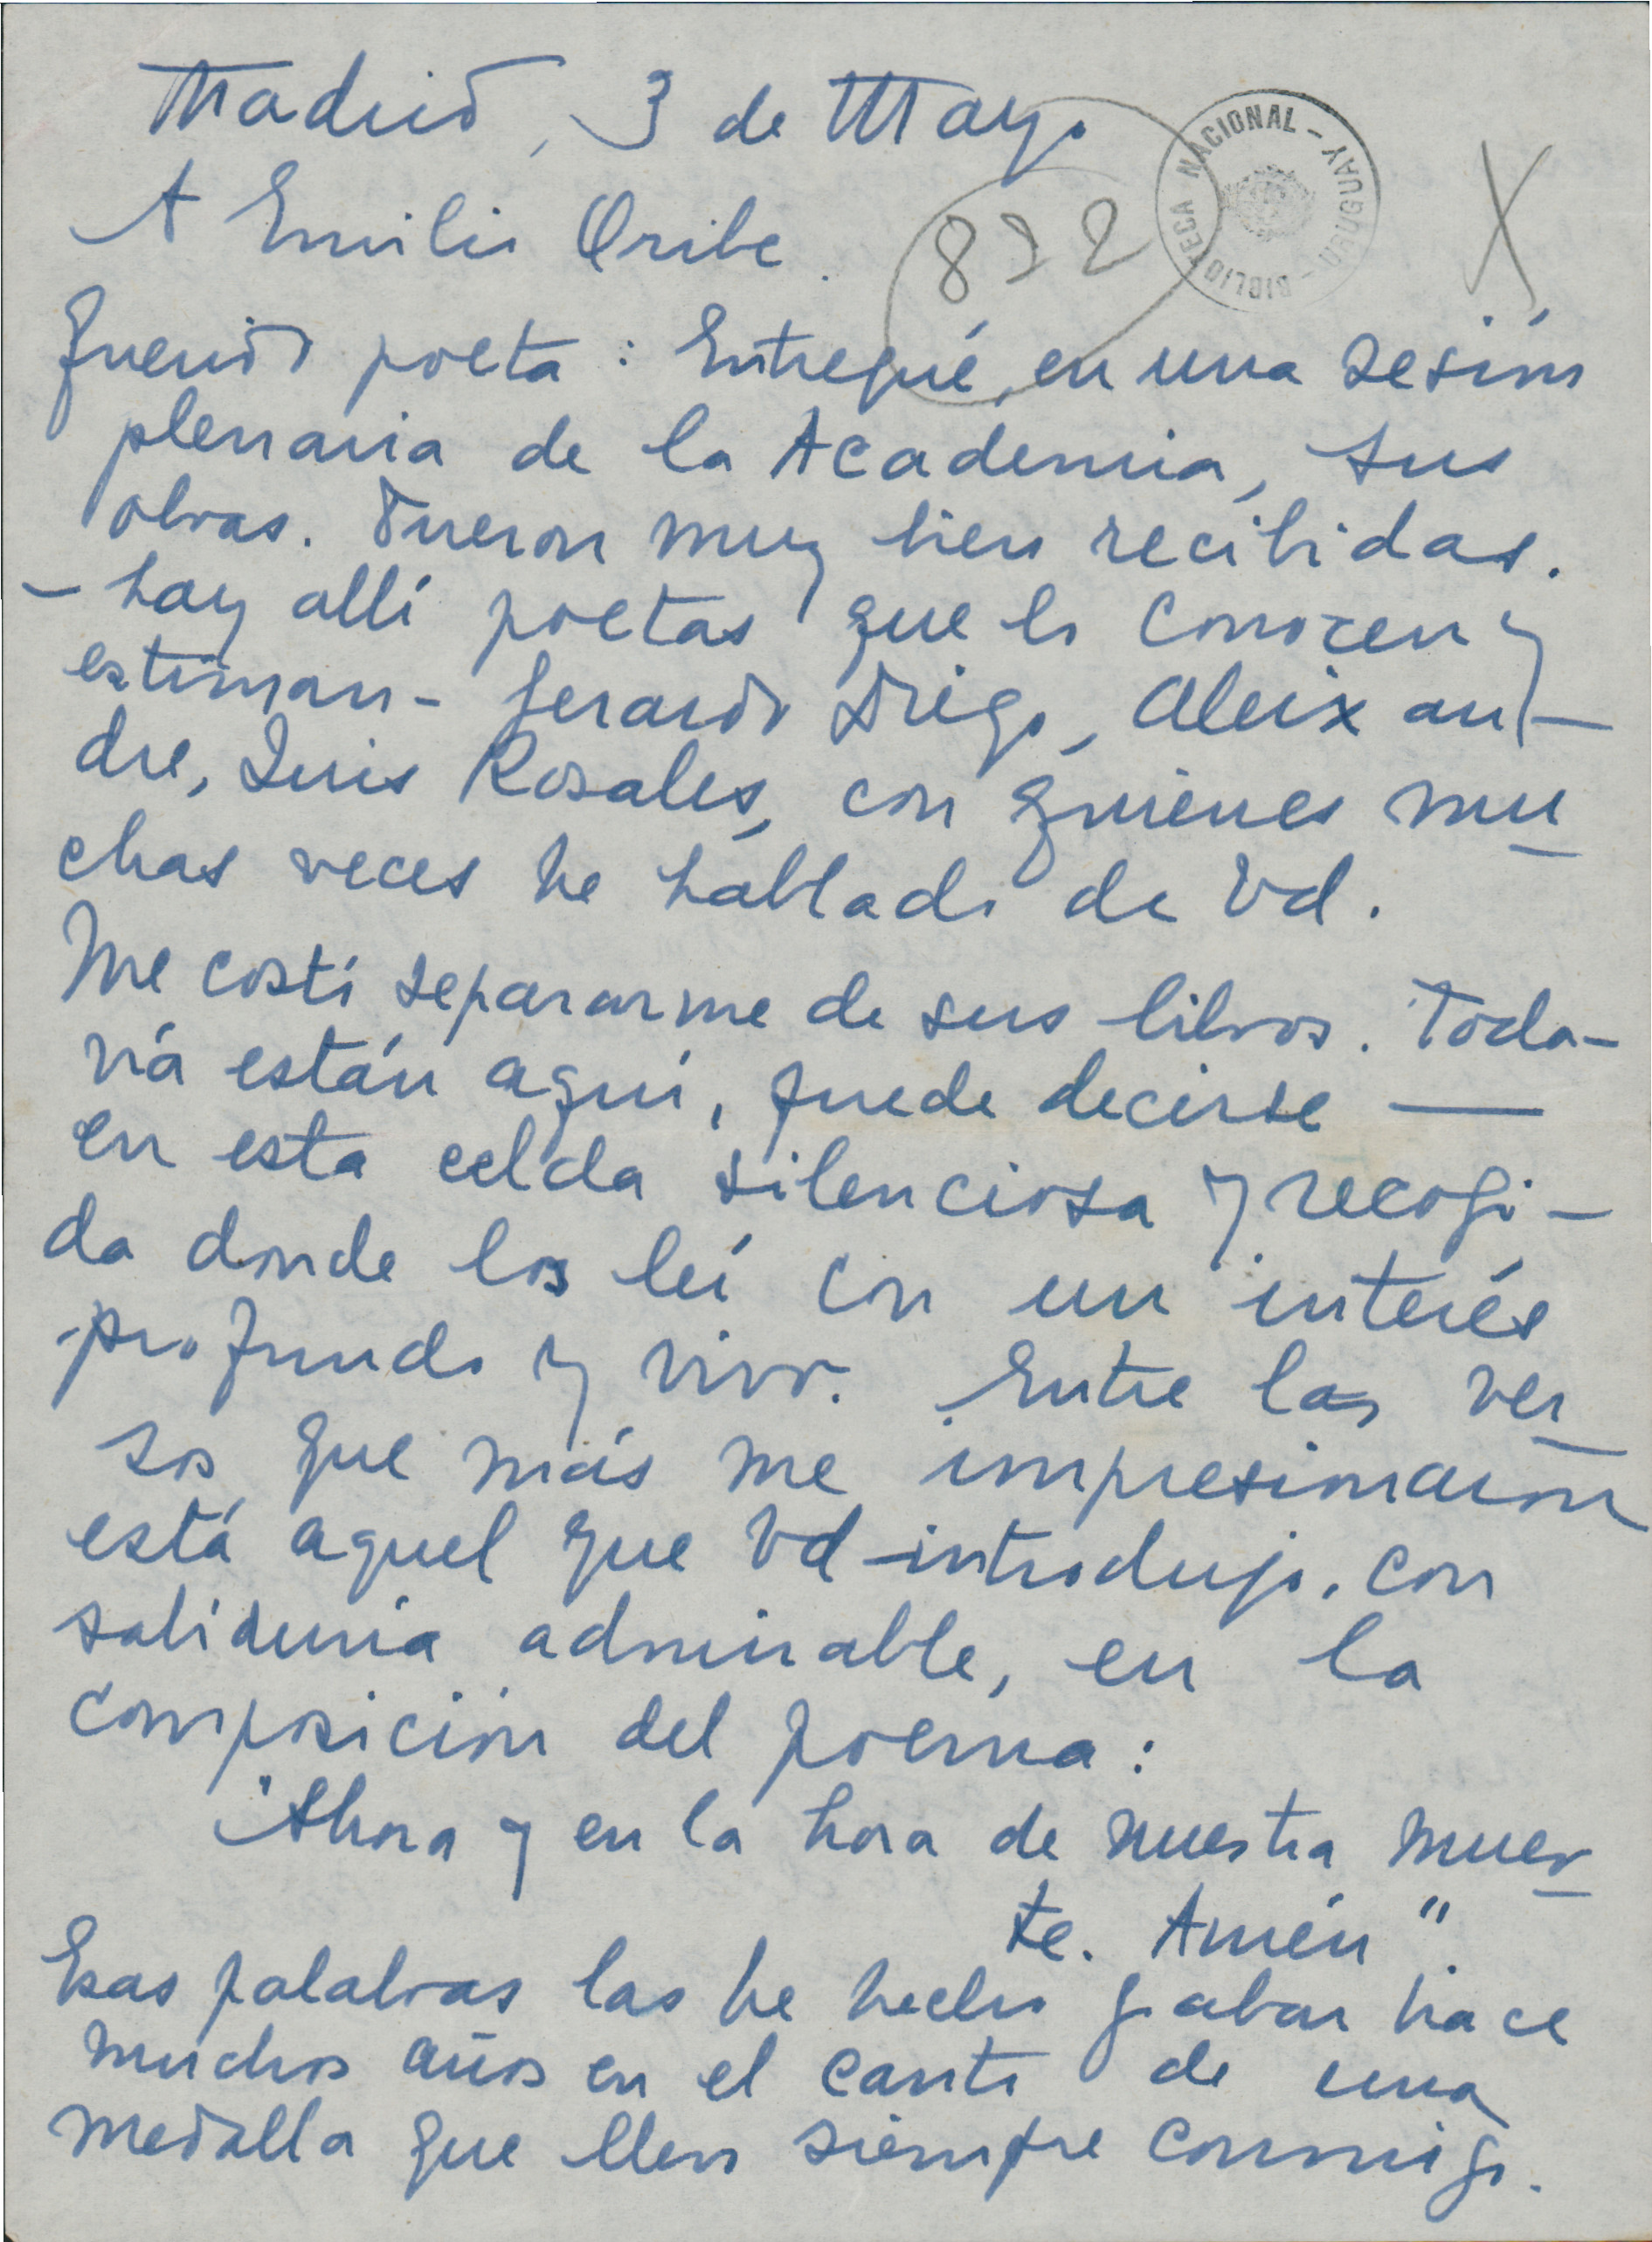 Madrid, 3 de Mayo
BIBLIOTECA NACIONAL - URUGUAY -
832
X
A Emilio Oribe.
Querido poeta: Entregué, en una sesión
plenaria de la Academia, sus
obras. Fueron muy bien recibidas.
- hay allí poetas que lo conocen y
estiman - Gerardo Diego, Aleixan-
dre, Luis Rosales, con quienes mu
chas veces he hablado de Vd.
Me costó separarme de sus libros. Toda-
vía están aquí, puede decirse —
en esta celda silenciosa y recogi-
da donde los leí con un interés
profundo y vivo. Entre los ver
sos que más me impresionaron
está aquel que Vd introdujo, con
sabiduría admirable, en la
composición del poema:
"Ahora y en la hora de nuestra muer
te. Amén".
Esas palabras las he hecho grabar hace
muchos años en el canto de una
medalla que llevo siempre conmigo.